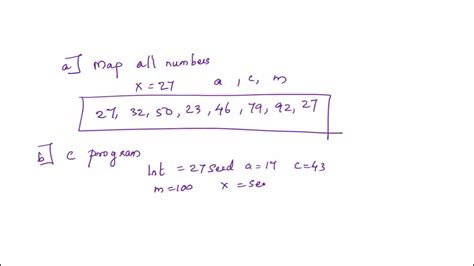 a] Map all numbers
x = 27 a, c, m
27, 32, 50, 23, 46, 79, 92, 27
b] c program
Int = 27 seed a = 17 c = 43
m = 100 x = see